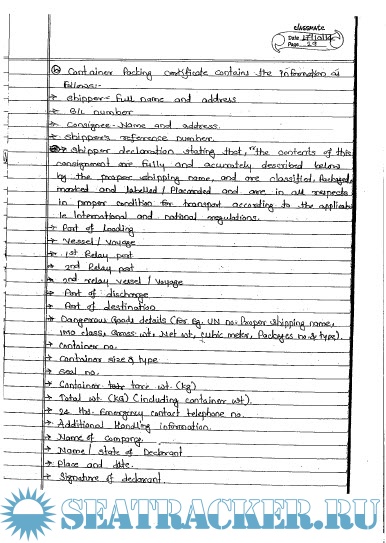 classmate
Date
Page 29
Container Packing certificate contains the Information as
follows:-
→ Shipper - Full name and address
→ B/L number
→ Consignee - Name and address.
→ Shipper's reference number.
→ Shipper declaration stating that, "the contents of this
consignment are fully and accurately described below
by the proper shipping name, and are classified, Packaged,
marked and labelled / Placarded and are in all respects
in proper condition for transport according to the applicab
le International and national regulations.
→ Port of Loading
→ Vessel / Voyage
→ 1st Relay port
→ 2nd Relay port
→ 2nd relay vessel / Voyage
→ Port of discharge
→ Port of destination
→ Dangerous Goods details (For Eg. UN no. Proper shipping name,
IMO class, Gross wt, Net wt, cubic meter, Packages no. & type).
→ Container no.
→ Container size & type
→ Seal no.
→ Container tare wt. (kg)
→ Total wt. (KG) (including container wt).
→ 24 Hrs. Emergency contact telephone no.
→ Additional Handling information.
→ Name of company.
→ Name / State of Declarant
→ Place and date.
→ Signature of declarant.
SEATRACKER.RU